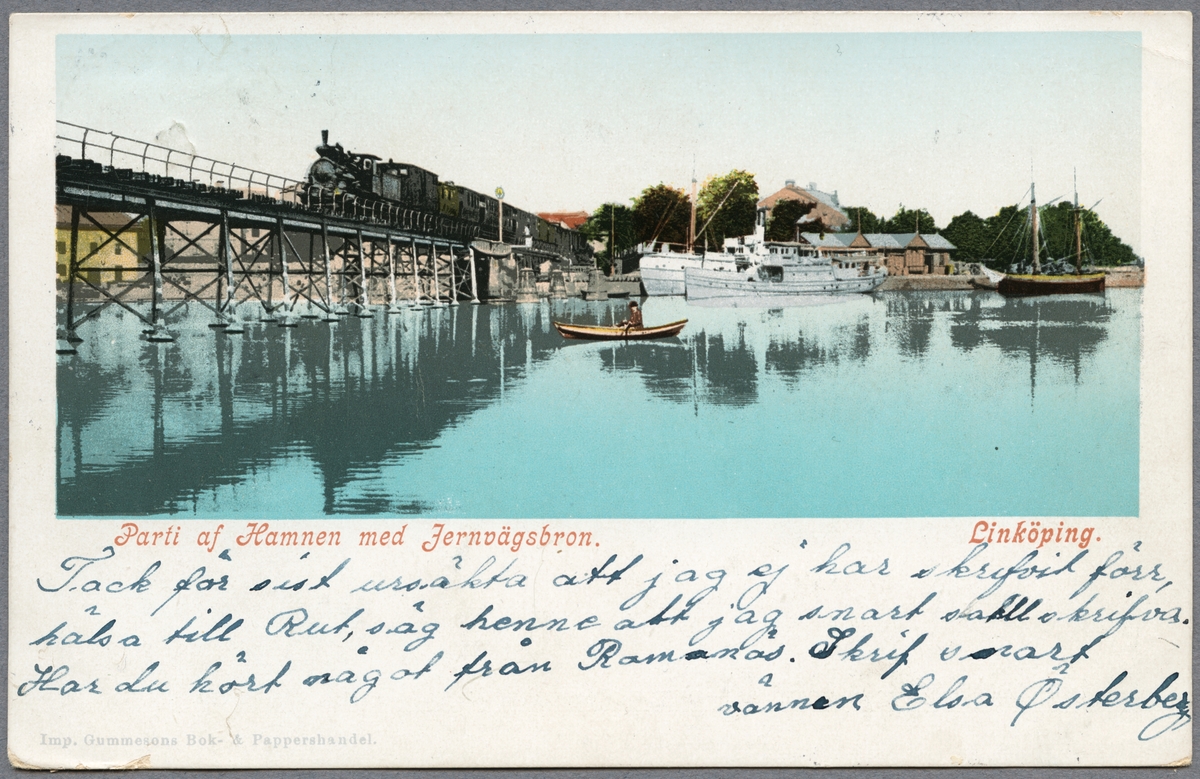 Parti af Hamnen med Jernvägsbron. Linköping.
Tack för sist ursäkta att jag ej har skrifvit förr,
hälsa till Rut, säg henne att jag snart skrifva.
Har du hört något från Ramanäs. Skrif snart
vännen Elsa Österberg
Imp. Gummesons Bok- & Pappershandel.